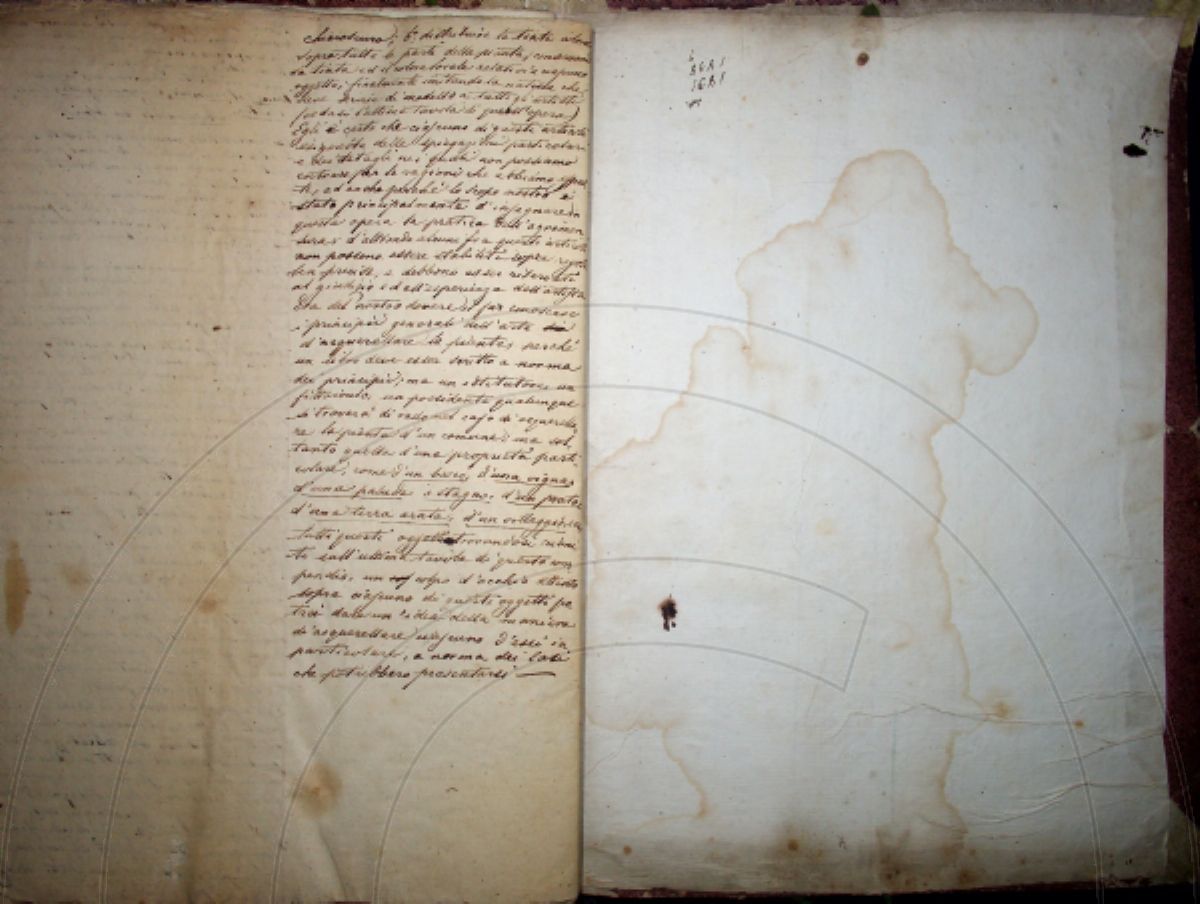 chiaroscuro; 6° distribuire le tinte
sopra tutte le parti della pianta,
la tinta ed il colore locale relativi a
oggetto; finalmente imitando la natura che
deve servire di modello a tutti gli artisti
(vedasi l'ultima tavola di quest'opera)
Egli è certo che ciascuno di questi articoli
delle spiegazioni particolari
e dei dettagli nei quali non possiamo
entrare per le ragioni che abbiamo
ed anche perché lo scopo nostro è
stato principalmente d'insegnare in
questa opera la pratica dell'agrimen
sura; d'altronde alcuni fra questi articoli
non possono essere stabiliti sopra regole
ben precise, e debbono essere
al giudizio ed all'esperienza dell'artista
Era del nostro dovere il far conoscere
i principii generali dell'arte
d'acquerellare le piante, perché
un libro deve esser scritto a norma
dei principii; ma un istitutore, un
un possidente qualunque
si troverà di rado nel caso di acquerella
re la pianta d'un comune; ma sol
tanto quella d'una proprietà parti
colare; come d'un bosco, d'una vigna,
d'una palude o stagno, d'un prato,
d'una terra arata, d'un villaggio,
tutti questi oggetti trovandosi riuni
ti sull'ultima tavola di questo com
pendio, un colpo d'occhio attento
sopra ciascuno di questi oggetti po
trà dare un'idea della maniera
di acquerellare ciascuno d'essi in
particolare, a norma dei casi
che potrebbero presentarsi —